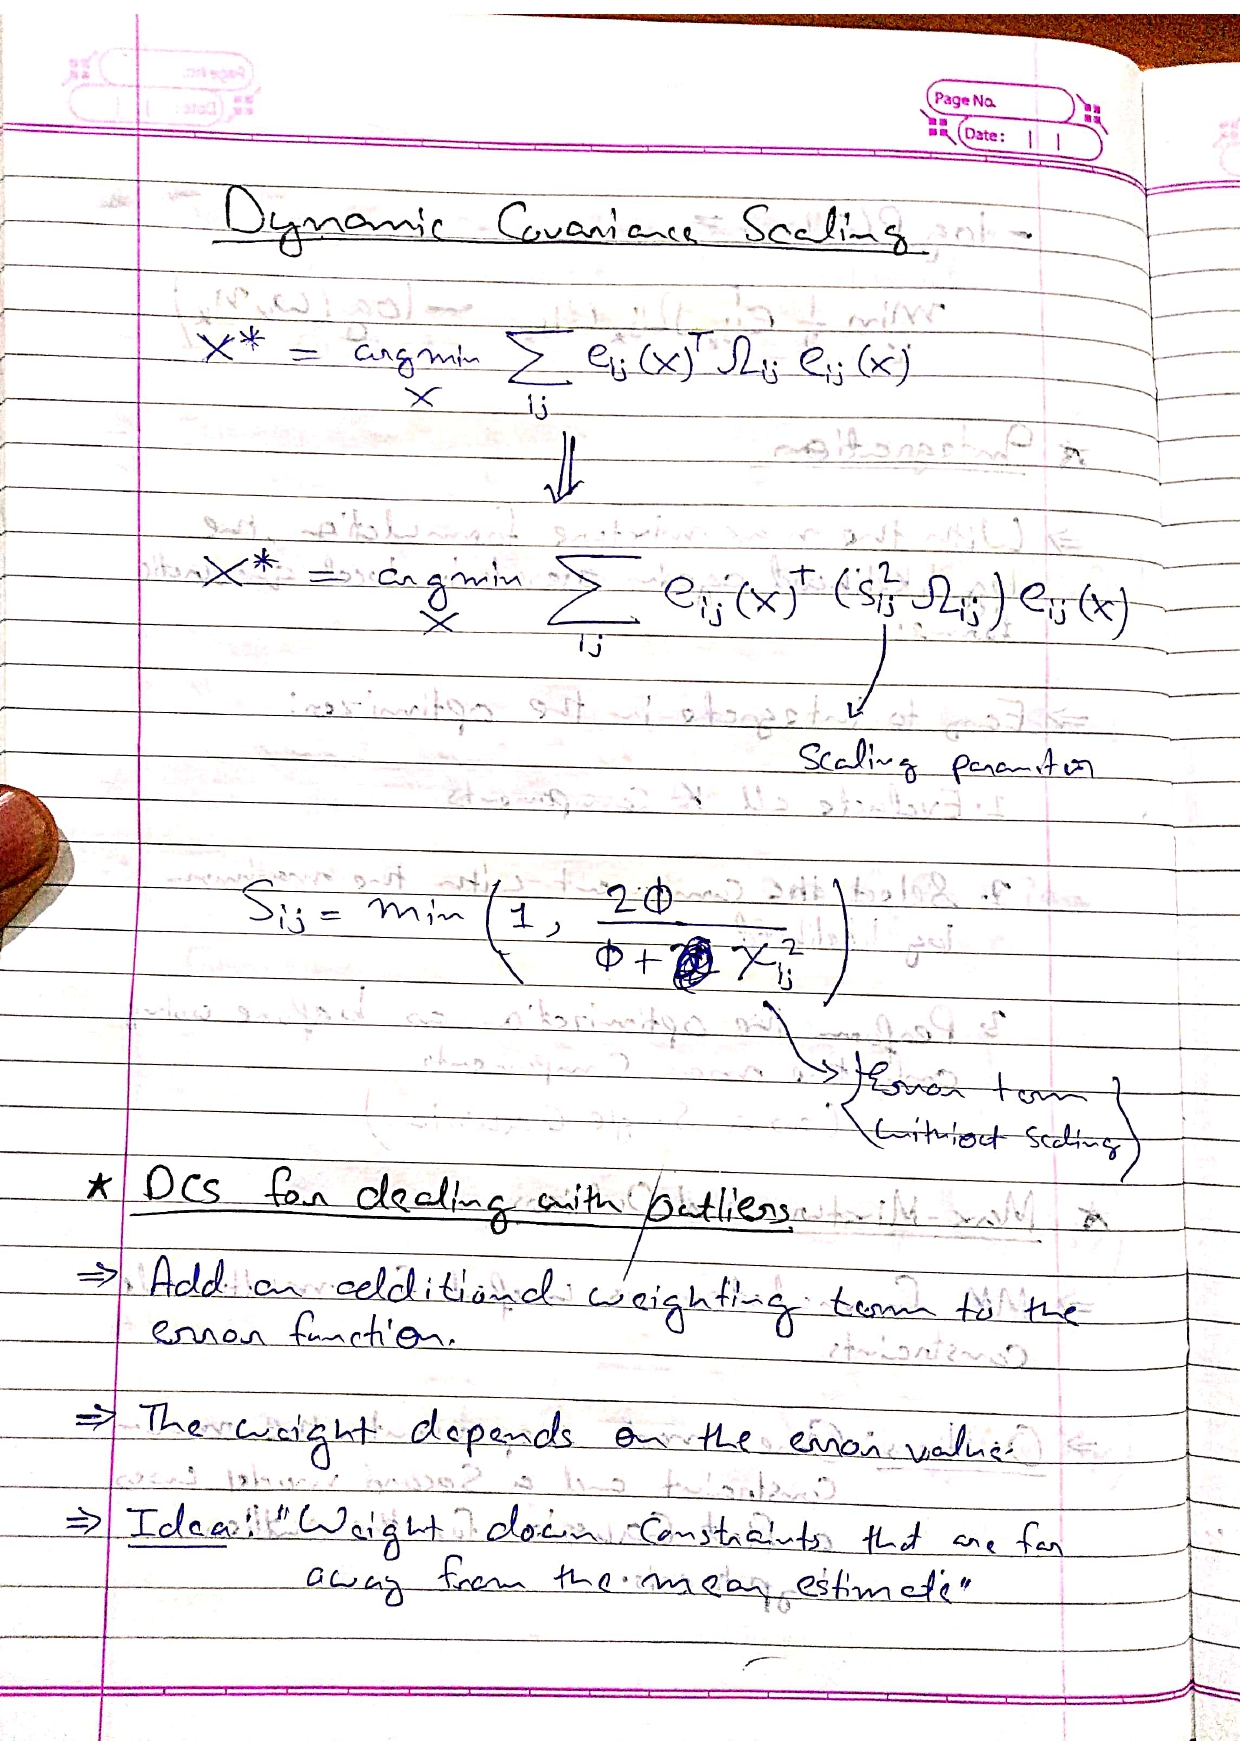 Page No.
Date: | |
Dynamic Covariance Scaling
X* = argmin_X Σ_ij e_ij(x)^T Ω_ij e_ij(x)
⇓
X* = argmin_X Σ_ij e_ij(x)^T (s_ij^2 Ω_ij) e_ij(x)
Scaling parameter
S_ij = min(1, 2Φ / (Φ + χ_ij^2))
{Error term
without scaling}
★ DCS for dealing with outliers
⇒ Add an additional weighting term to the
error function.
⇒ The weight depends on the error value.
⇒ Idea: "Weight down constraints that are far
away from the mean estimate"